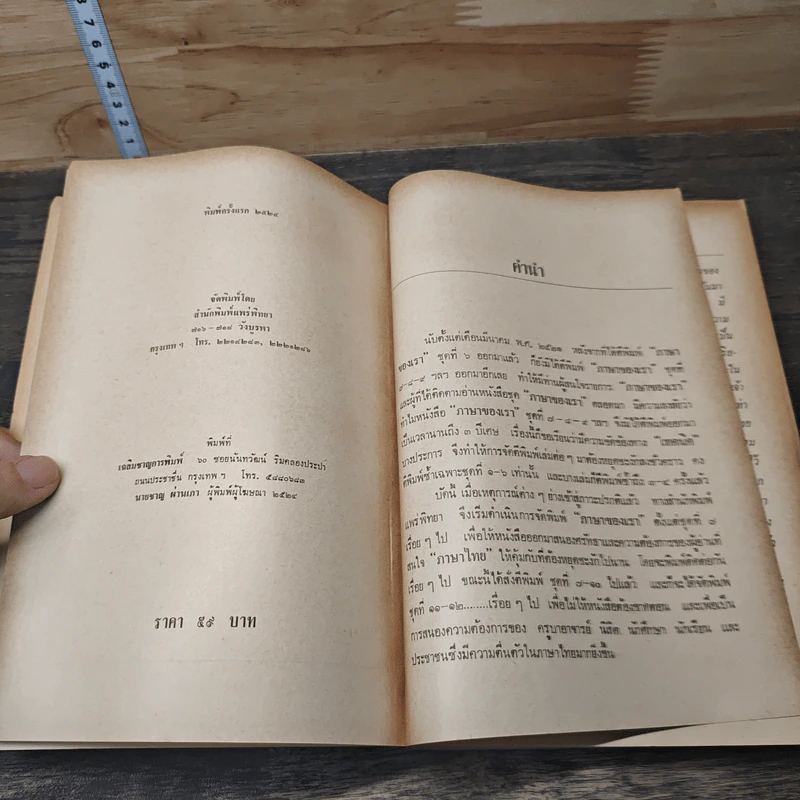 พิมพ์ครั้งแรก ๒๕๒๔
จัดพิมพ์โดย
สำนักพิมพ์แพร่พิทยา
๗๑๖-๗๑๘ วังบูรพา
กรุงเทพ ฯ โทร. ๒๒๑๔๒๘๓, ๒๒๒๑๒๘๖
พิมพ์ที่
เฉลิมชาญการพิมพ์ ๖๐ ซอยนันทวัฒน์ ริมคลองประปา
ถนนประชาชื่น กรุงเทพ ฯ โทร. ๕๘๘๐๖๘๓
นายชาญ ผ่านเภา ผู้พิมพ์ผู้โฆษณา ๒๕๒๔
ราคา ๕๙ บาท
คำนำ
นับตั้งแต่เดือนมีนาคม พ.ศ. ๒๕๒๑ หลังจากที่ได้ตีพิมพ์ "ภาษา
ของเรา" ชุดที่ ๖ ออกมาแล้ว ก็ยังไม่ได้ตีพิมพ์ "ภาษาของเรา" ชุดที่
๗-๘-๙ ฯลฯ ออกมาอีกเลย ทำให้มีท่านผู้สนใจรายการ "ภาษาของเรา"
และผู้ที่ได้ติดตามอ่านหนังสือชุด "ภาษาของเรา" ตลอดมา มีความสงสัยว่า
ทำไมหนังสือ "ภาษาของเรา" ชุดที่ ๗-๘-๙ ฯลฯ จึงไม่ได้ตีพิมพ์ออกมา
เป็นเวลานานถึง ๓ ปีเศษ เรื่องนี้ก็ขอเรียนว่ามีความขัดข้องทาง "เทคนิค"
บางประการ จึงทำให้การตีพิมพ์เล่มต่อๆ มาต้องหยุดชะงักลงชั่วคราว คง
ตีพิมพ์ซ้ำเฉพาะชุดที่ ๑-๖ เท่านั้น และบางเล่มก็ตีพิมพ์ซ้ำถึง ๓-๔ ครั้งแล้ว
บัดนี้ เมื่อเหตุการณ์ต่างๆ ย่างเข้าสู่ภาวะปรกติแล้ว ทางสำนักพิมพ์
แพร่พิทยา จึงเริ่มดำเนินการจัดพิมพ์ "ภาษาของเรา" ตั้งแต่ชุดที่ ๗
เรื่อยๆ ไป เพื่อให้หนังสือออกมาสนองศรัทธาและความต้องการของผู้อ่านที่
สนใจ "ภาษาไทย" ให้คุ้มกับที่ต้องหยุดชะงักไปนาน โดยจะพิมพ์ติดต่อกัน
เรื่อยๆ ไป ขณะนี้ได้สั่งตีพิมพ์ ชุดที่ ๗-๑๐ ไปแล้ว และก็จะได้จัดพิมพ์
ชุดที่ ๑๑-๑๒........เรื่อยๆ ไป เพื่อไม่ให้หนังสือต้องขาดตอน และเพื่อเป็น
การสนองความต้องการของ ครูบาอาจารย์ นิสิต นักศึกษา นักเรียน และ
ประชาชนซึ่งมีความตื่นตัวในภาษาไทยมากยิ่งขึ้น